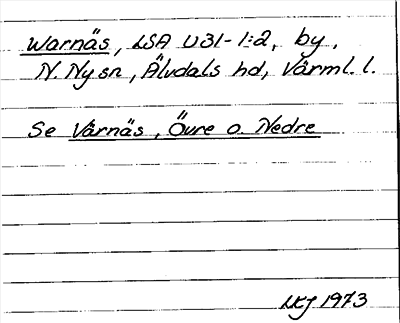 Warnäs, LSA U31-1:2, by,
N. Ny sn, Älvdals hd, Värml. l.
Se Värnäs, Övre o. Nedre
LKJ 1973